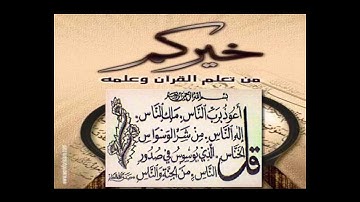 خيركم
من تعلم القرآن وعلمه
بسم الله الرحمن الرحيم
قل أعوذ برب الناس، ملك الناس،
إله الناس، من شر الوسواس
الخناس، الذي يوسوس في صدور
الناس، من الجنة والناس